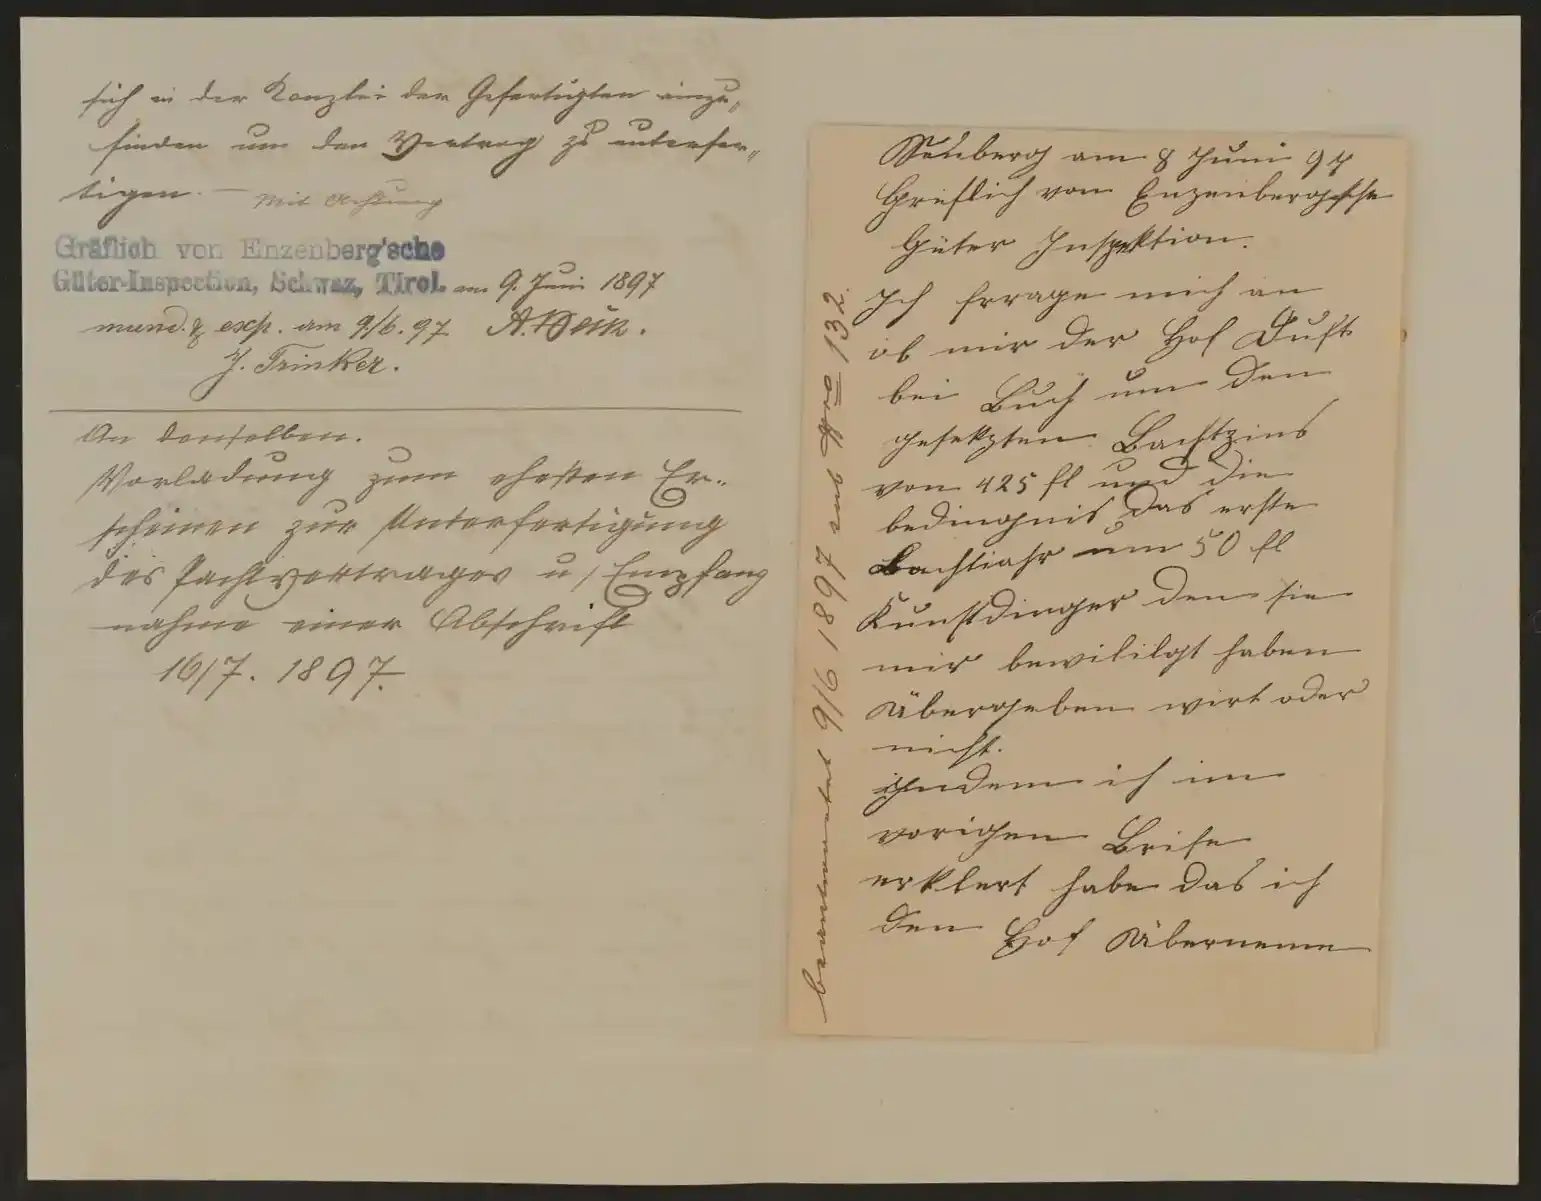 sich in der Kanzlei der Gefertigten einzu„
finden um den Vertrag zu unterfer„
tigen. — Mit Achtung
Gräflich von Enzenberg'sche
Güter-Inspection, Schwaz, Tirol. am 9. Juni 1897
mund. & exp. am 9/6. 97. A.
J. Trinker.
An denselben.
Vorladung zum ehesten Er„
scheinen zur Unterfertigung
des Pachtvertrages u/ Empfang
nahme einer Abschrift
16/7. 1897.
am 8 Juni 97
Greflich von Enzenbergische
Güter Inspektion.
Ich frrage mich an
ob mir der Hof Duft
bei Buch um den
gesekzten Bachtzins
von 425 fl und die
bedingnis das erste
Bachtiahr um 50 fl
Kunstdinger den sie
mir bewililgt haben
Übergeben wirt oder
nicht.
Indem ich im
vorigen Brife
erklert habe das ich
den Hof Überneme
beantwortet 9/6 1897 sub Nro 132.